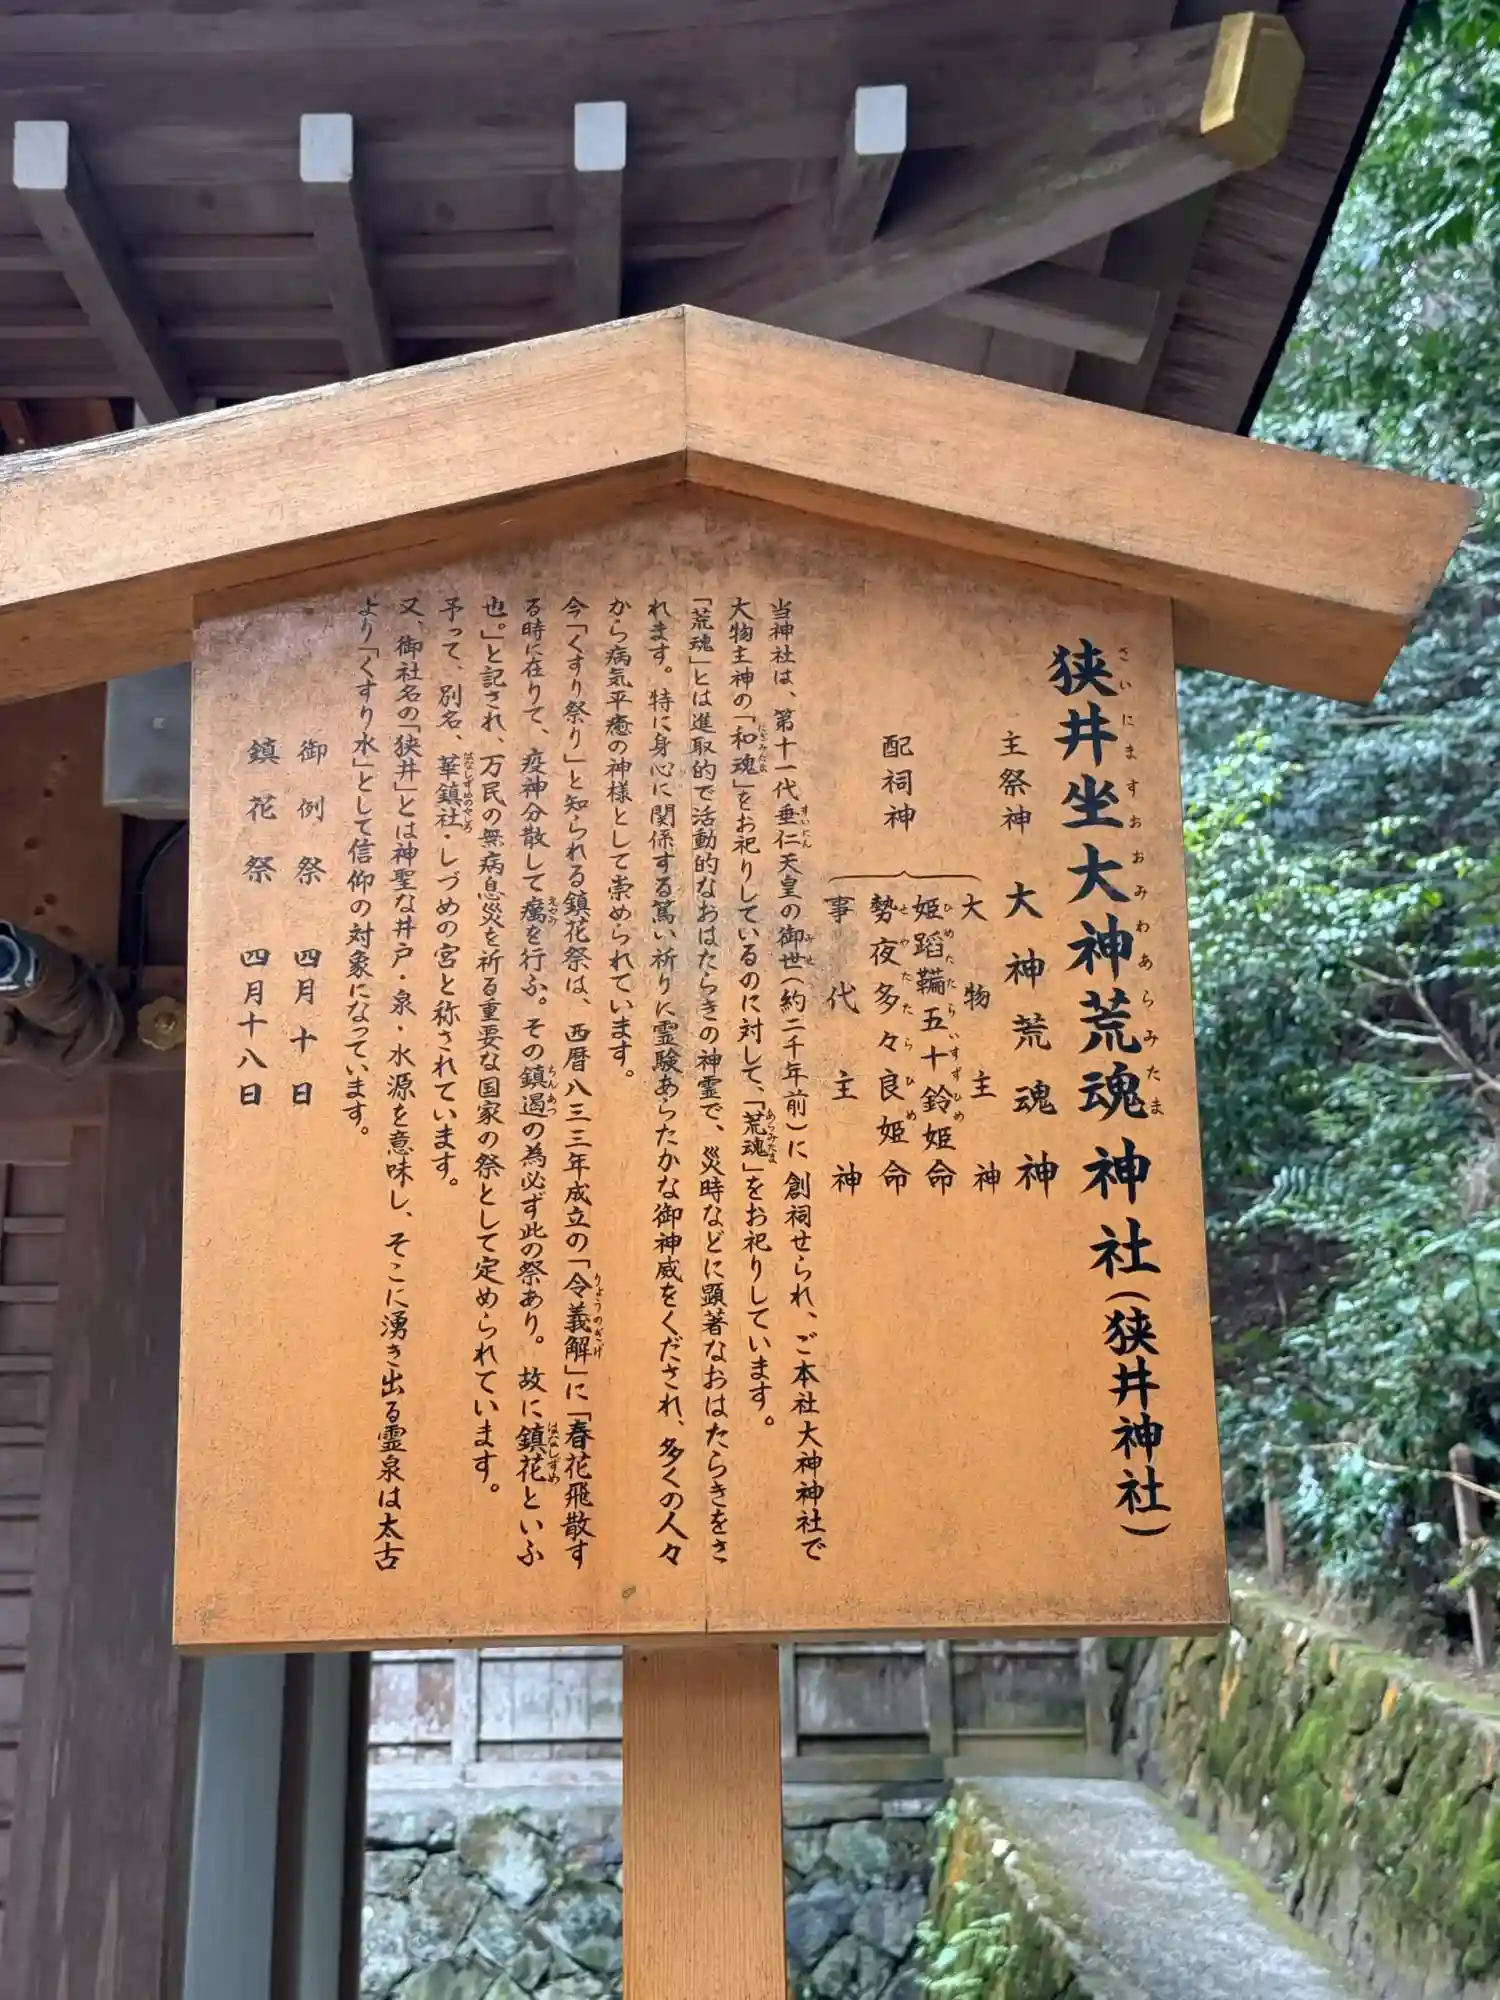 狭井坐大神荒魂神社(狭井神社)
さいにますおおみわあらみたま
主祭神 大神荒魂神
配祠神 大物主神
姫蹈鞴五十鈴姫命
ひめたたらいすずひめ
勢夜多々良姫命
せやたたらひめ
事代主神
当神社は、第十一代垂仁天皇の御世(約二千年前)に創祠せられ、ご本社大神神社で
すいにん みよ
大物主神の「和魂」をお祀りしているのに対して、「荒魂」をお祀りしています。
にぎみたま あらみたま
「荒魂」とは進取的で活動的なおはたらきの神霊で、災時などに顕著なおはたらきをさ
れます。特に身心に関係する篤い祈りに霊験あらたかな御神威をくだされ、多くの人々
から病気平癒の神様として崇められています。
今「くすり祭り」と知られる鎮花祭は、西暦八三三年成立の「令義解」に「春花飛散す
りょうのぎげ
る時に在りて、疫神分散して癘を行ふ。その鎮遏の為必ず此の祭あり。故に鎮花といふ
えやみ ちんあつ はなしずめ
也。」と記され、万民の無病息災を祈る重要な国家の祭として定められています。
予って、別名、華鎮社・しづめの宮と称されています。
はなしずめのやしろ
又、御社名の「狭井」とは神聖な井戸・泉・水源を意味し、そこに湧き出る霊泉は太古
より「くすり水」として信仰の対象になっています。
御例祭 四月十日
鎮花祭 四月十八日